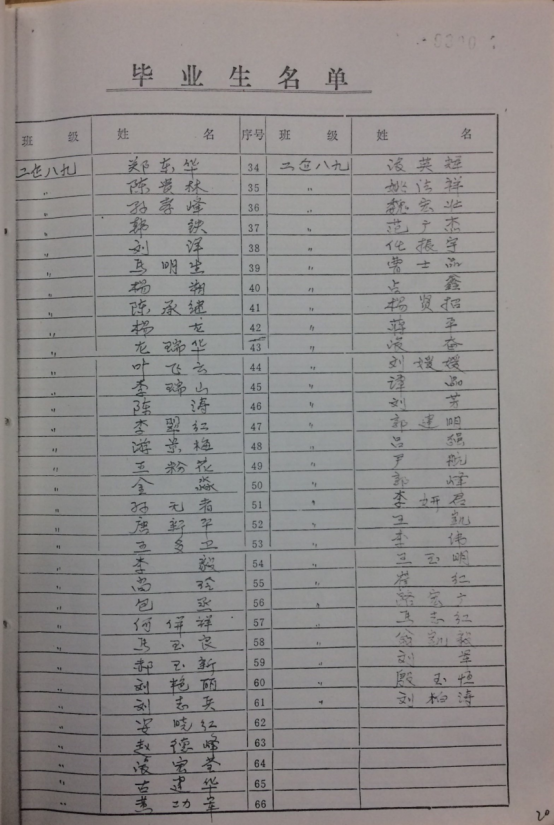 5300
毕业生名单
班 级 姓 名 序号 班 级 姓 名
二企八九 郑东华 34 二企八九 凌英挺
〃 陈贵林 35 〃 姚洁祥
〃 孙宗峰 36 〃 魏宏业
〃 韩 轶 37 〃 范广杰
〃 刘 洋 38 〃 任振宇
〃 马明生 39 〃 曹士品
〃 杨 湘 40 〃 占 鑫
〃 陈承继 41 〃 杨贤招
〃 杨 龙 42 〃 蒋 平
〃 龙瑞华 43 〃 凌 奋
〃 叶飞云 44 〃 刘媛媛
〃 李瑞山 45 〃 谭 品
〃 陈 涛 46 〃 刘 芳
〃 李翠红 47 〃 郭建明
〃 游景梅 48 〃 吕 强
〃 王粉花 49 〃 尹 航
〃 金 淼 50 〃 郭 峰
〃 孙无者 51 〃 李妍君
〃 唐新平 52 〃 王 凯
〃 王多卫 53 〃 李 伟
〃 李 毅 54 〃 王玉明
〃 尚 玲 55 〃 红
〃 包 丞 56 〃 宏广
〃 何保祥 57 〃 马志红
〃 马玉良 58 〃 毅
〃 郝玉新 59 〃 刘 军
〃 刘艳丽 60 〃 殷玉恒
〃 刘志兵 61 〃 刘柏涛
〃 安晓红 62
〃 赵德峰 63
〃 凌宏荃 64
〃 古建华 65
〃 黄功宝 66
20